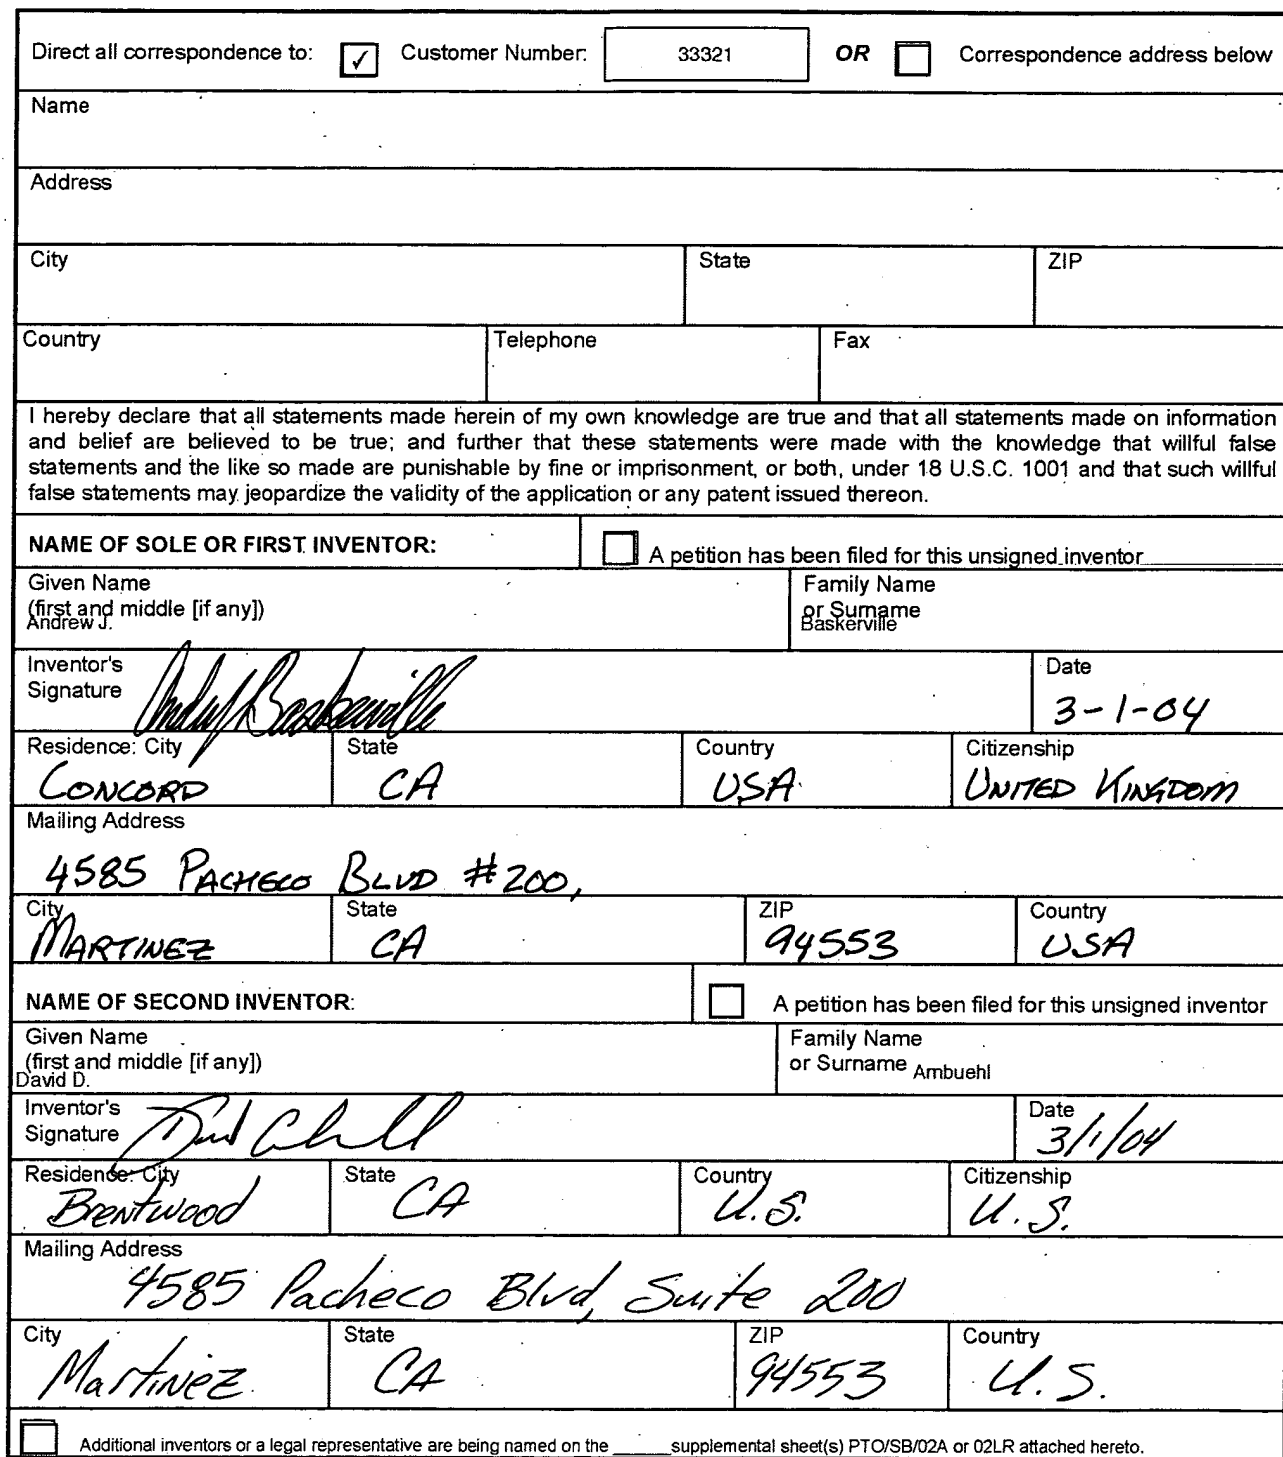 Direct all correspondence to: ✓ Customer Number: 33321 OR Correspondence address below
Name
Address
City State ZIP
Country Telephone Fax
I hereby declare that all statements made herein of my own knowledge are true and that all statements made on information
and belief are believed to be true; and further that these statements were made with the knowledge that willful false
statements and the like so made are punishable by fine or imprisonment, or both, under 18 U.S.C. 1001 and that such willful
false statements may jeopardize the validity of the application or any patent issued thereon.
NAME OF SOLE OR FIRST INVENTOR: A petition has been filed for this unsigned inventor
Given Name Family Name
(first and middle [if any]) or Surname
Andrew J. Baskerville
Inventor's Date
Signature Andy J Baskerville 3-1-04
Residence: City State Country Citizenship
CONCORD CA USA UNITED KINGDOM
Mailing Address
4585 PACHECO BLVD #200,
City State ZIP Country
MARTINEZ CA 94553 USA
NAME OF SECOND INVENTOR: A petition has been filed for this unsigned inventor
Given Name Family Name
(first and middle [if any]) or Surname Ambuehl
David D.
Inventor's Date
Signature 3/1/04
Residence: City State Country Citizenship
Brentwood CA U.S. U.S.
Mailing Address
4585 Pacheco Blvd, Suite 200
City State ZIP Country
Martinez CA 94553 U.S.
Additional inventors or a legal representative are being named on the ______supplemental sheet(s) PTO/SB/02A or 02LR attached hereto.